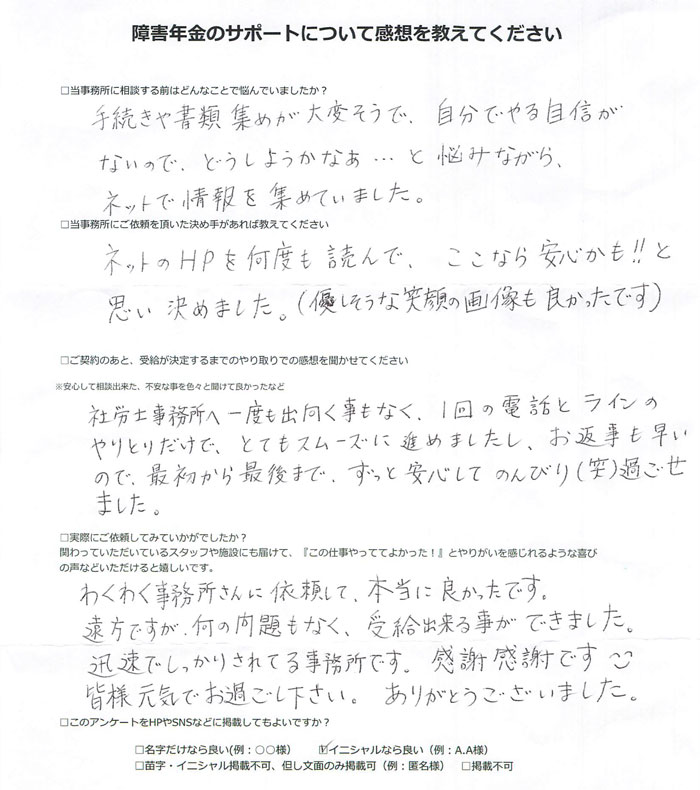 障害年金のサポートについて感想を教えてください
□当事務所に相談する前はどんなことで悩んでいましたか？
手続きや書類集めが大変そうで、自分でやる自信が
ないので、どうしようかなあ…と悩みながら、
ネットで情報を集めていました。
□当事務所にご依頼を頂いた決め手があれば教えてください
ネットのHPを何度も読んで、ここなら安心かも!!と
思い決めました。(優しそうな笑顔の画像も良かったです)
□ご契約のあと、受給が決定するまでのやり取りでの感想を聞かせてください
※安心して相談出来た、不安な事を色々と聞けて良かったなど
社労士事務所へ一度も出向く事もなく、1回の電話とラインの
やりとりだけで、とてもスムーズに進めましたし、お返事も早い
ので、最初から最後まで、ずっと安心してのんびり(笑)過ごせ
ました。
□実際にご依頼してみていかがでしたか？
関わっていただいているスタッフや施設にも届けて、『この仕事やっててよかった！』とやりがいを感じれるような喜び
の声などいただけると嬉しいです。
わくわく事務所さんに依頼して、本当に良かったです。
遠方ですが、何の問題もなく、受給出来る事ができました。
迅速でしっかりされてる事務所です。感謝感謝です
皆様元気でお過ごし下さい。ありがとうございました。
□このアンケートをHPやSNSなどに掲載してもよいですか？
□名字だけなら良い(例：○○様) ☑イニシャルなら良い（例：A.A様）
□苗字・イニシャル掲載不可、但し文面のみ掲載可（例：匿名様） □掲載不可